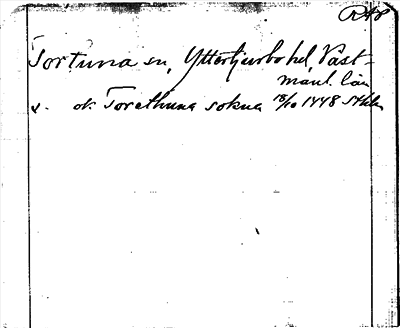 RAP
Tortuna sn, Yttertjurbo hd, Väst-
manl. län
v. ok Torathuna sokna 18/10 1448 Sthlm